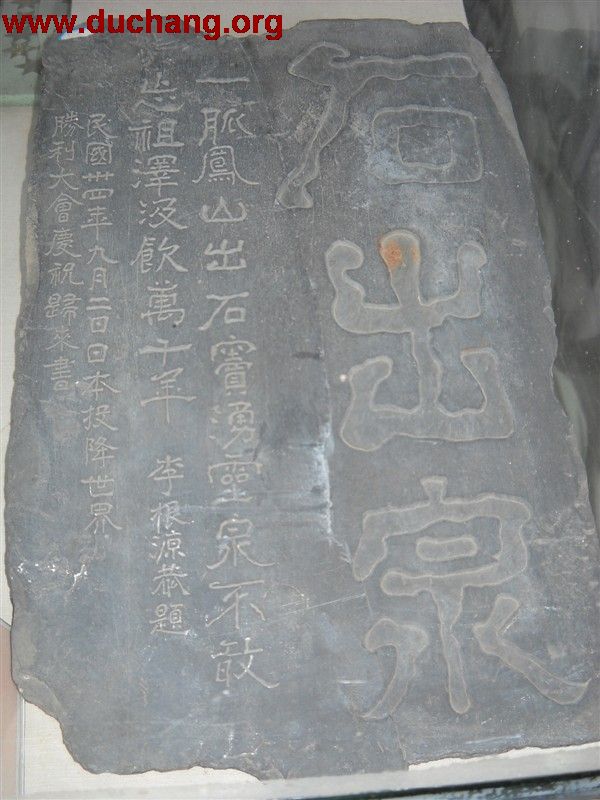 www.duchang.org
石出泉
一脈鳳山出石竇湧靈泉不敢
忘祖澤汲飲萬千年 李根源恭題
民國卅四年九月二日日本投降世界
勝利大會慶祝歸來書